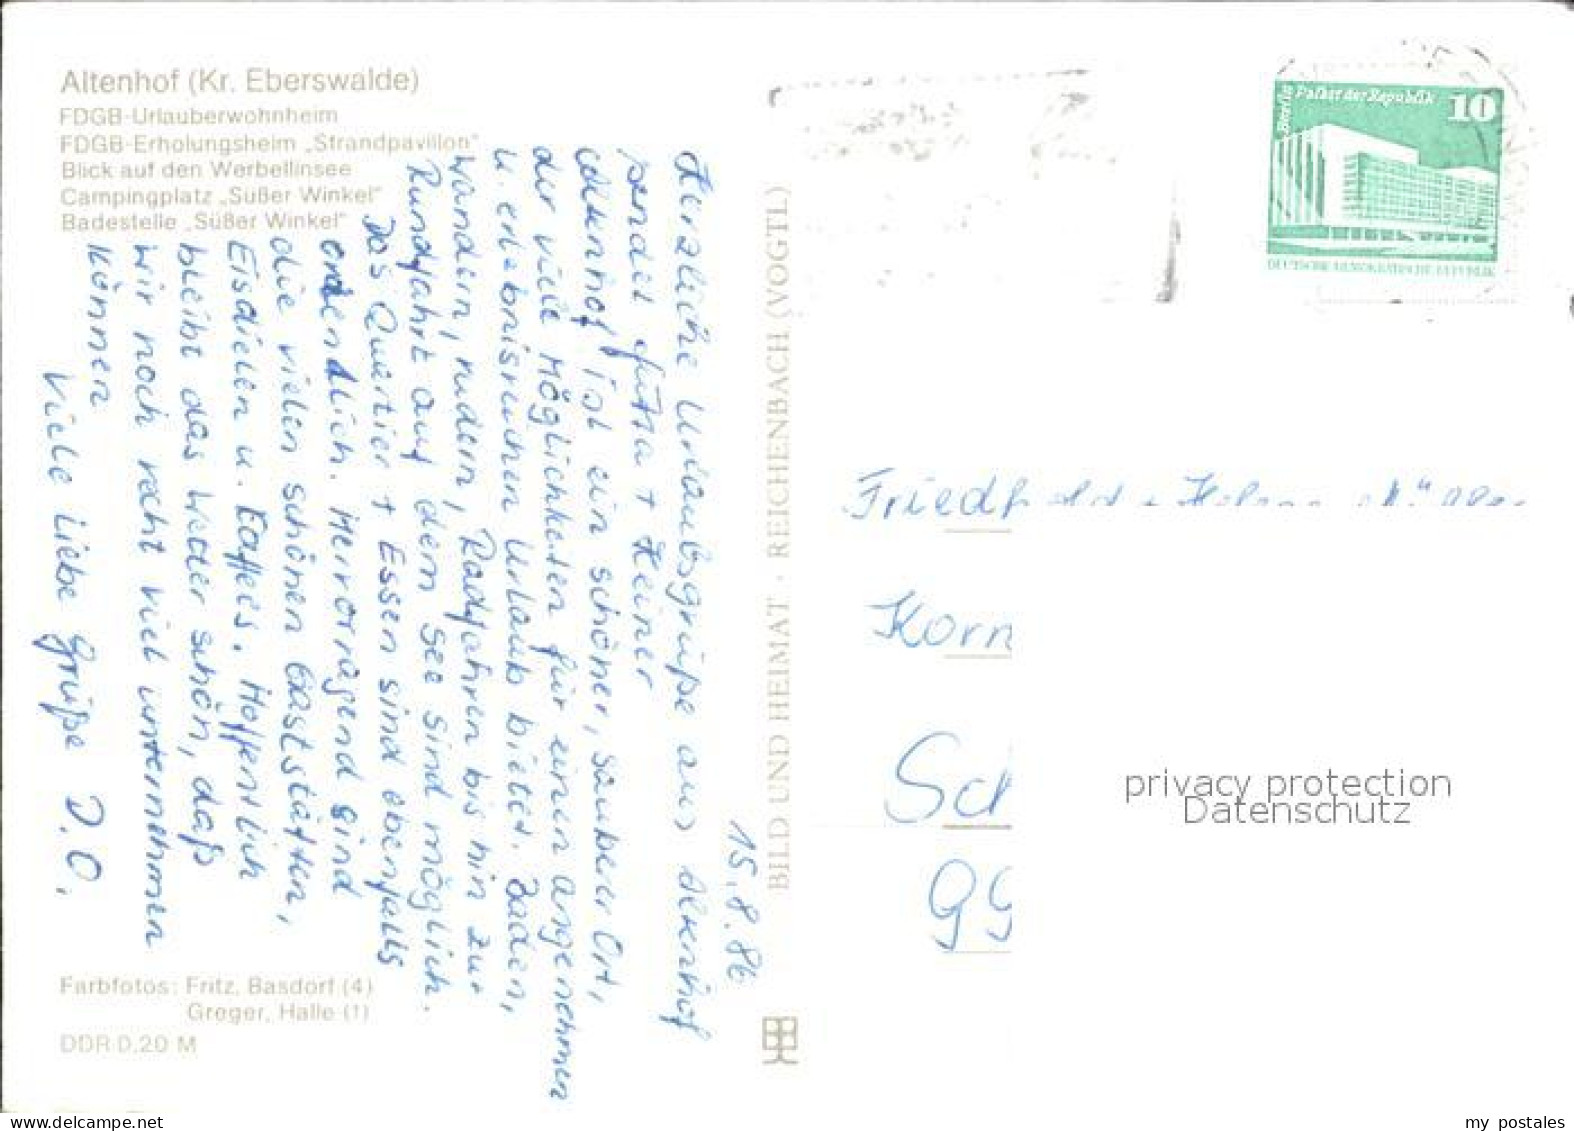 Altenhof (Kr. Eberswalde)
FDGB-Urlauberwohnheim
FDGB-Erholungsheim „Strandpavillon"
Blick auf den Werbellinsee
Campingplatz „Süßer Winkel"
Badestelle „Süßer Winkel"
15.8.86
Herzliche Urlaubsgrüße aus Altenhof
sendet Jutta + Heiner
Altenhof ist ein schöner, sauberer Ort,
der viele Möglichkeiten für einen angenehmen
u. erlebnisreichen Urlaub bietet. Baden,
wandern, rudern, Radfahren bis hin zur
Rundfahrt auf dem See sind möglich.
Das Quartier + Essen sind ebenfalls
ordendlich. Hervorragend sind
die vielen schönen Gaststätten,
Eisdielen u. Kaffees. Hoffentlich
bleibt das Wetter schön, daß
wir noch recht viel unternehmen
können
Viele liebe Grüße D.O.
Farbfotos: Fritz, Basdorf (4)
Greger, Halle (1)
DDR 0,20 M
BILD UND HEIMAT · REICHENBACH (VOGTL)
Berlin Palast der Republik 10
DEUTSCHE DEMOKRATISCHE REPUBLIK
Friedh
Korn
Sch
99
privacy protection
Datenschutz
www.delcampe.net
my_postales